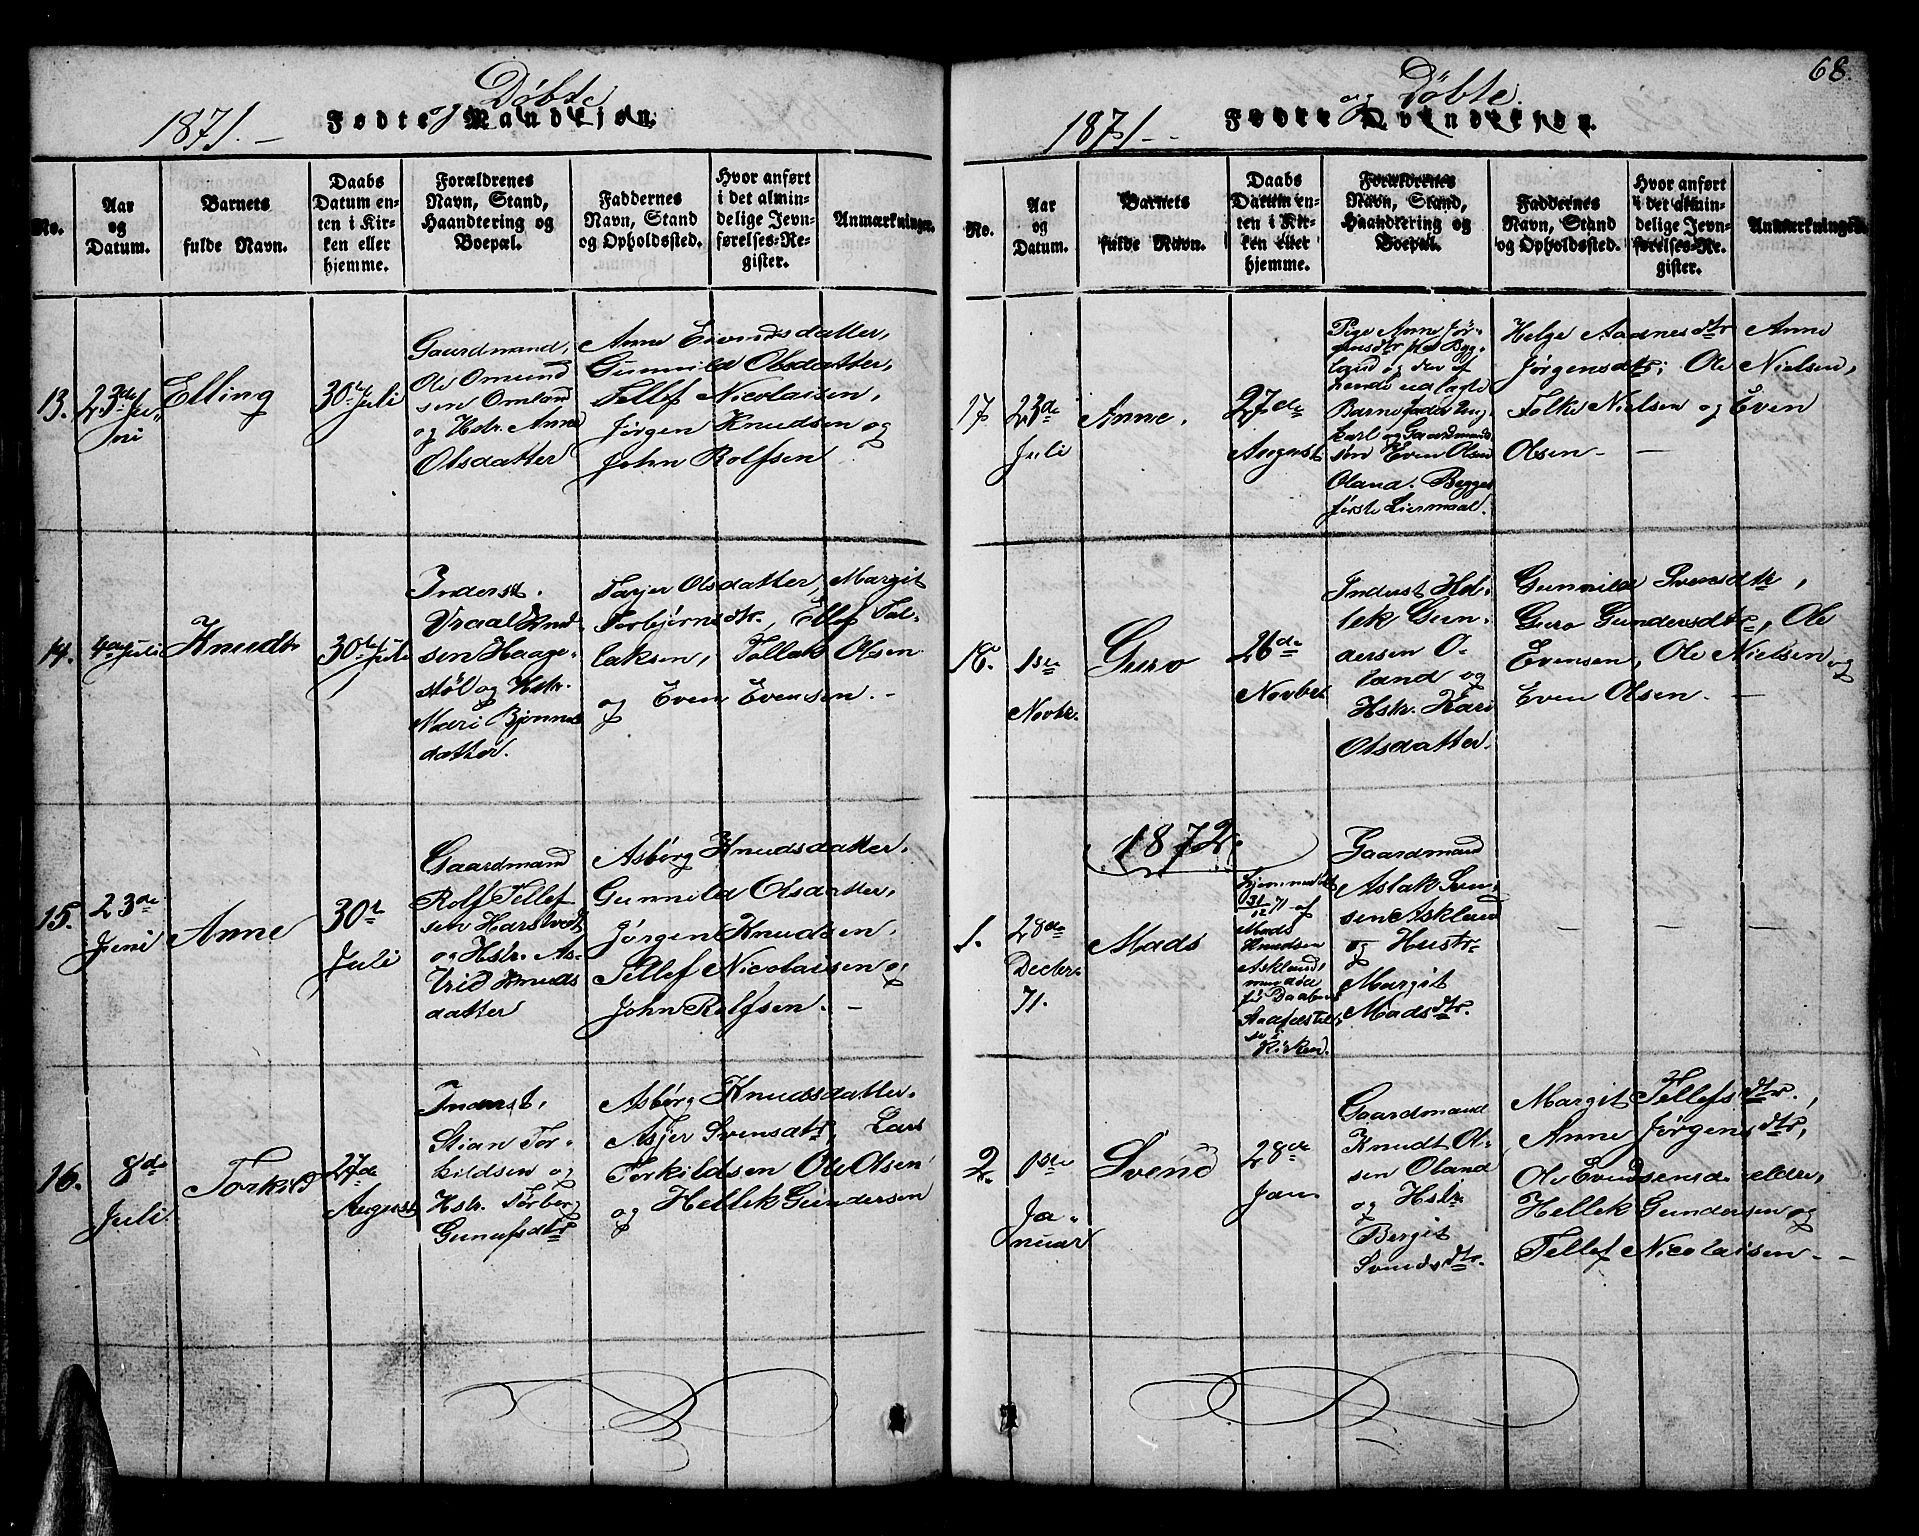 1871. –
Fødte og Døbte
Mandkjøn.
No.
Aar
og
Datum.
Barnets
fulde Navn.
Daabs
Datum en-
ten i Kir-
ken eller
hjemme.
Forældrenes
Navn, Stand,
Haandtering og
Boepæl.
Faddernes
Navn, Stand
og Opholdssted.
Hvor anført
i det almin-
delige Jevn-
førelses-Re-
gister.
Anmærkninger.
13.
23de Ju-
ni
Elling
30te Juli
Gaardmand,
Ole Omund
sen Omland
og Hstr. Anne
Olsdatter
Anne Evensdatter,
Gunnild Olsdatter,
Tellef Nicolaisen,
Jørgen Knudsen og
John Rolfsen
14.
4de Juli
Knudt
30te Juli
Inderst.
Vraal Knud-
sen Haage-
støl og Hstr.
Mari Bjønns
datter.
Tarjer Olsdatter, Margit
Torbjørnsdtr., Ellef Tal-
laksen, Tallak Olsen
og Even Evensen. –
15.
23de
Juni
Anne
30te
Juli
Gaardmand
Rolf Tellef
sen Harstvedt
og Hstr. As-
trid Knuds
datter
Asbørg Knudsdatter.
Gunnild Olsdatter,
Jørgen Knudsen,
Tellef Nicolaisen og
John Rolfsen. –
16.
8de
Juli
Torkild
27de
August
Inderst,
Stian Tor-
kildsen og
Hstr. Torbor
Gunufsdtr
Asbørg Knudsdatter.
Asjer Svensdtr, Lars
Torkildsen Ole Olsen
og Hellek Gundersen
68.
1871 –
Fødte og Døbte.
Qvindekjøn.
No.
Aar
og
Datum.
Barnets
fulde Navn.
Daabs
Datum en-
ten i Kir-
ken eller
hjemme.
Forældrenes
Navn, Stand,
Haandtering og
Boepæl.
Faddernes
Navn, Stand
og Opholdssted.
Hvor anført
i det almin-
delige Jevn-
førelses-Re-
gister.
Anmærkninger.
17
23de
Juli
Anne.
27de
August
Pige Anne Jør-
gensdtr ved Byg-
land og den af
hende udlagte
Barnefader Ung
karl og Gaardmands
søn Even Olsen
Oland. Begges
første Leiermaal.
Helge Aadnesdtr Anne
Jørgensdtr; Ole Nielsen,
Folke Nielsen og Even
Olsen – –
18.
1ste
Novbr.
Guro
26de
Novber
Inderst Hel-
lek Gun-
dersen O-
land og
Hstr. Kari
Olsdatter.
Gunnild Svensdtr,
Guro Gundersdtr, Ole
Evensen, Ole Nielsen og
Even Olsen. –
1872.
1.
28de
Decbr.
71.
Mads
Hjemmedøbt
31/12 71 af
Mads
Knudsen
Askland,
men døde
før Daabens
Stadfæstel-
se i
Kirken.
Gaardmand
Aslak Sven-
sen Askland
og Hustr.
Margit
Madsdtr.
– – –
2.
1ste
Ja-
nuar
Svend
28de
Jan.
Gaardmand
Knudt Ol-
sen Oland
og Hstr.
Bergit
Svendsdtr.
Margit Tellefsdtr.,
Anne Jørgensdtr,
Ole Evndsensd. eldre,
Hellek Gundersen og
Tellef Nicolaisen – –